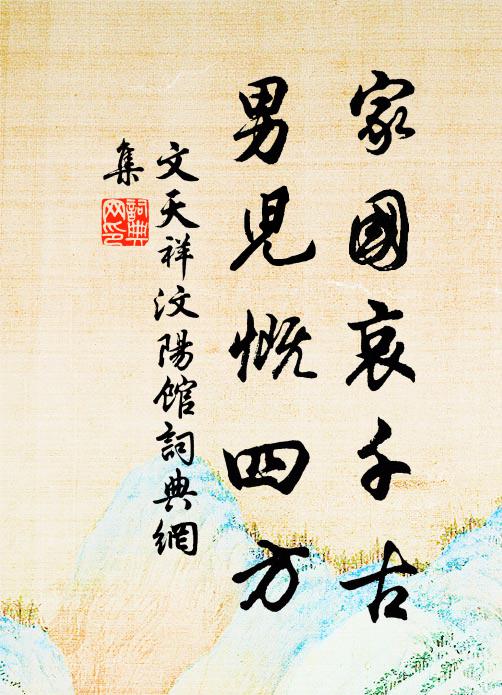 家國哀千古
男兒慨四方
文天祥汶陽館詞典網
集
詞典
网印